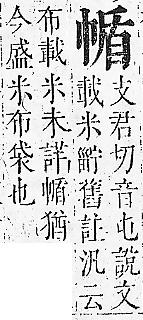 㡒
支君切音屯說文
載米䉺舊註汎云
布載米未詳㡒猶
今盛米布袋也